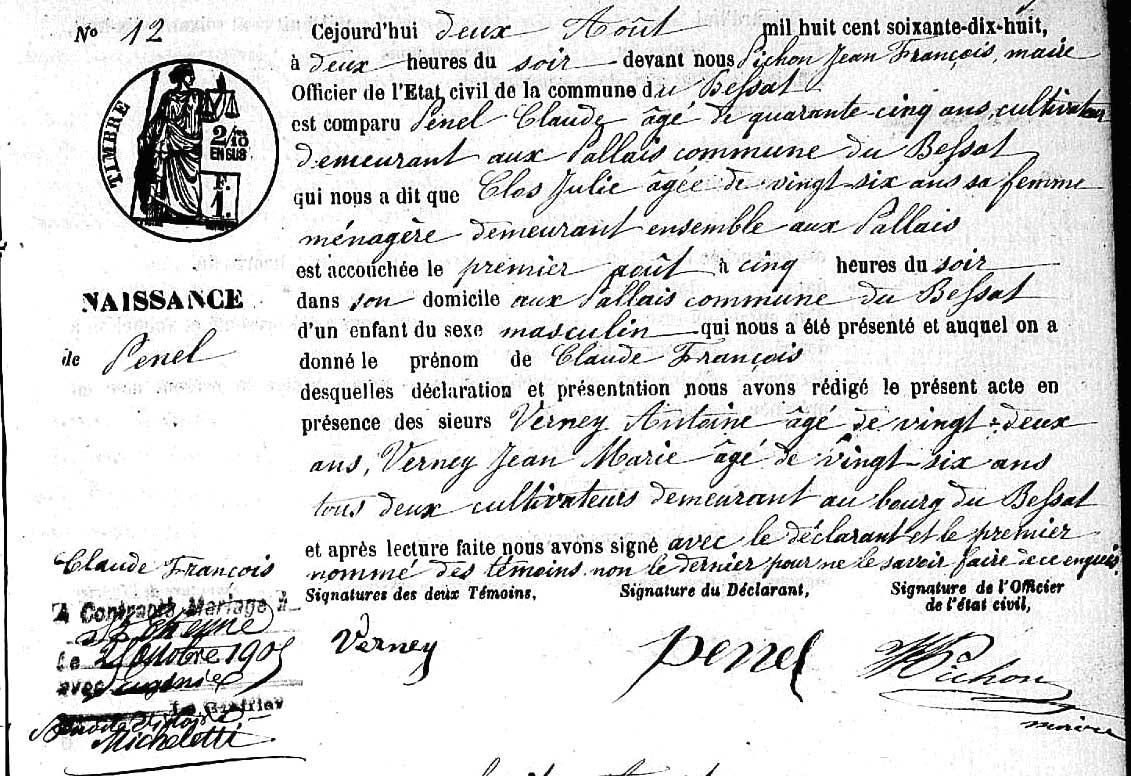 No 12
TIMBRE
2/10
EN SUS
F.
1.
NAISSANCE
de Penel
Claude François
A Contracté Mariage à
St Etienne
Le Octobre 190
avec Eugénie
Le Greffier
Micheletti
Cejourd'hui deux Août mil huit cent soixante-dix-huit,
à deux heures du soir devant nous Pichon Jean François, maire
Officier de l'Etat civil de la commune du Bessat
est comparu Penel Claude âgé de quarante-cinq ans, cultivateur
demeurant aux Pallais commune du Bessat
qui nous a dit que Clos Julie âgée de vingt-six ans sa femme
ménagère demeurant ensemble aux Pallais
est accouchée le premier août à cinq heures du soir
dans son domicile aux Pallais commune du Bessat
d'un enfant du sexe masculin qui nous a été présenté et auquel on a
donné le prénom de Claude François
desquelles déclaration et présentation nous avons rédigé le présent acte en
présence des sieurs Verney Antoine âgé de vingt-deux
ans, Verney Jean Marie âgé de vingt-six ans
tous deux cultivateurs demeurant au bourg du Bessat
et après lecture faite nous avons signé avec le déclarant et le premier
nommé des témoins non le dernier pour ne le savoir faire de ce enquis
Signatures des deux Témoins, Signature du Déclarant, Signature de l'Officier
de l'état civil,
Verney Penel Pichon
maire